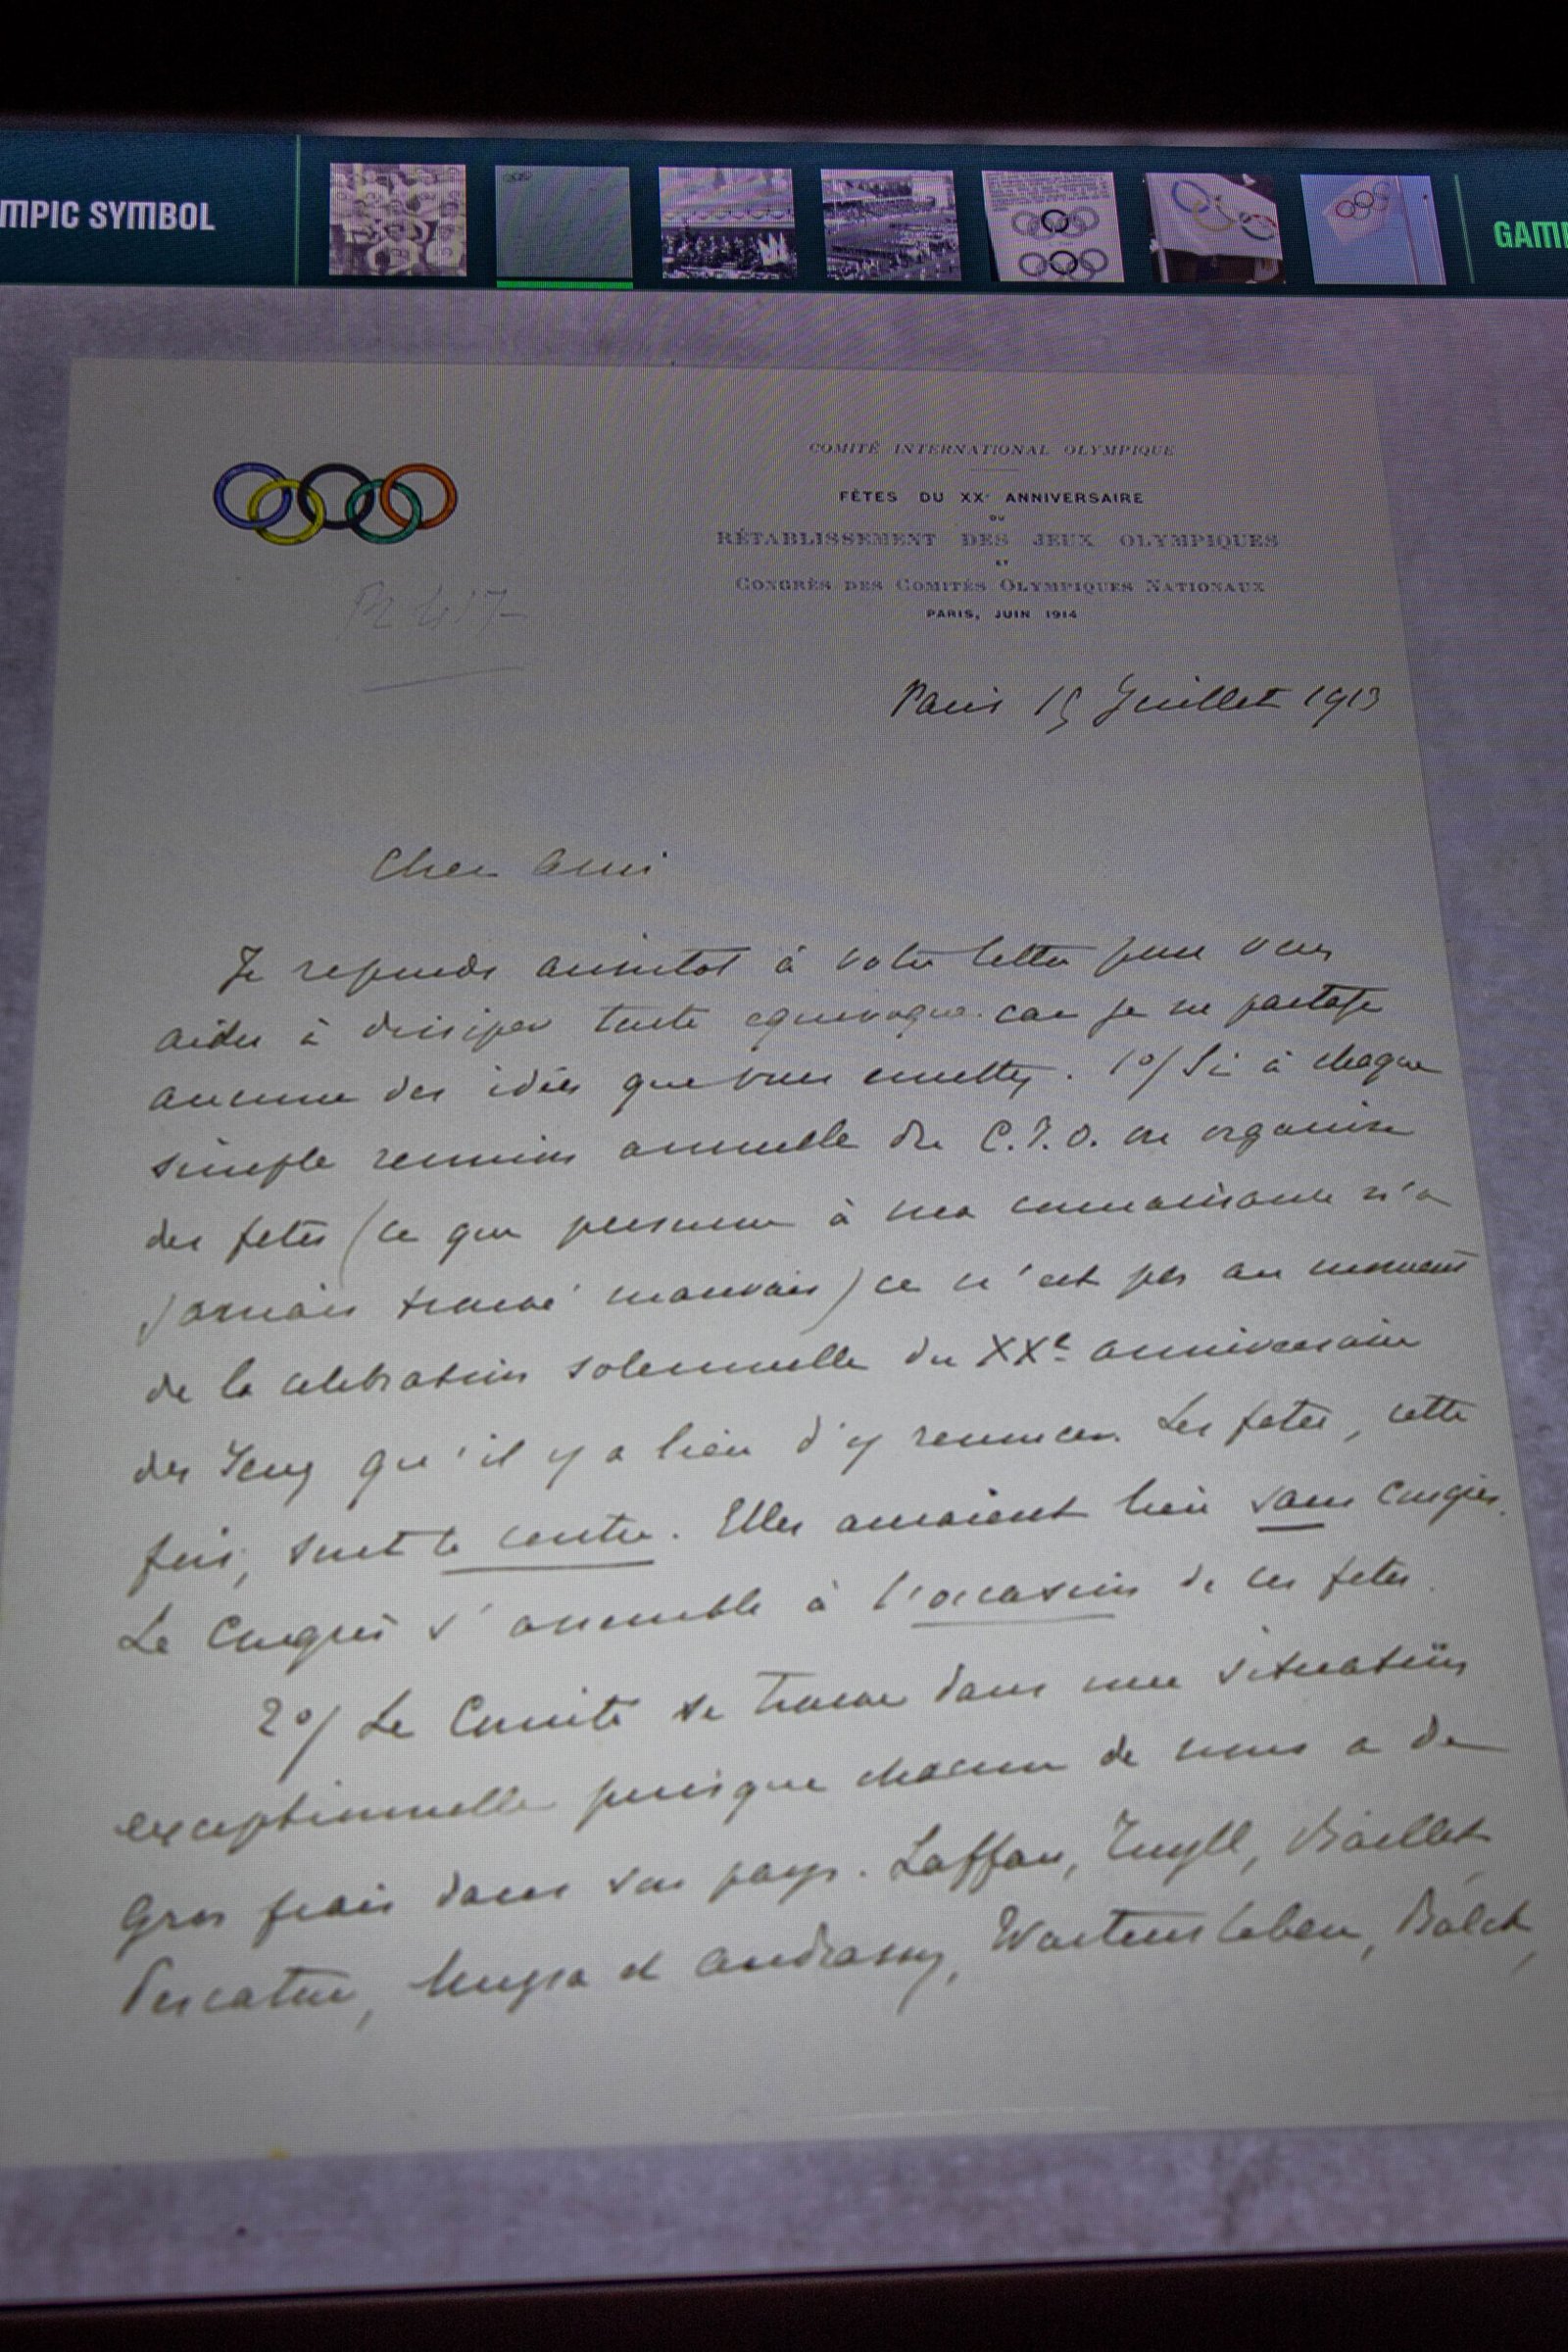 MPIC SYMBOL
GAM
COMITÉ INTERNATIONAL OLYMPIQUE
FÊTES DU XXᵉ ANNIVERSAIRE
DU
RÉTABLISSEMENT DES JEUX OLYMPIQUES
ET
CONGRÈS DES COMITÉS OLYMPIQUES NATIONAUX
PARIS, JUIN 1914
Paris 15 Juillet 1913
Cher Ami
Je reponds aussitot à votre lettre pour vous
aider à dissiper toute equivoque car je ne partage
aucune des idées que vous emettez. 1º/ Si à chaque
simple reunion annuelle du C.I.O. on organise
des fetes (ce que personne à ma connaissance n'a
jamais trouvé mauvais) ce n'est pas au moment
de la celebration solennelle du XXᵉ anniversaire
des Jeux qu'il y a lieu d'y renoncer. Les fetes, cette
fois, sont le centre. Elles auraient lieu sans Congrès.
Le Congrès s'assemble à l'occasion de ces fetes.
2º/ Le Comité se trouve dans une situation
exceptionnelle puisque chacun de nous a de
gros frais dans son pays. Laffan, Tuyll, Baillet
Pescatore, Muzsa et Andrassy, Wartensleben, Balck,